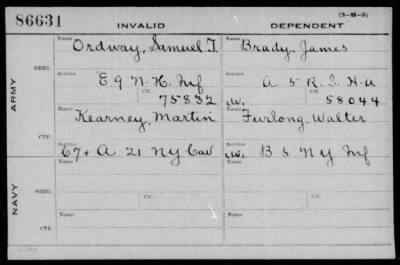 86631
INVALID
DEPENDENT
(3—H—5)
ARMY
ORIG.
Name Ordway, Samuel T.
Name Brady, James
Service E 9 N. H. Inf
Service A 5 R. I. H. A
Ctf. 75832
W. Ctf. 58044
CTF.
Name Kearney, Martin
Name Furlong, Walter
Service E 7 + A 21 NY Cav
Service W. B 5 N Y Inf
NAVY
ORIG.
Name
Ctf.
Name
Ctf.
CTF.
Name
Name